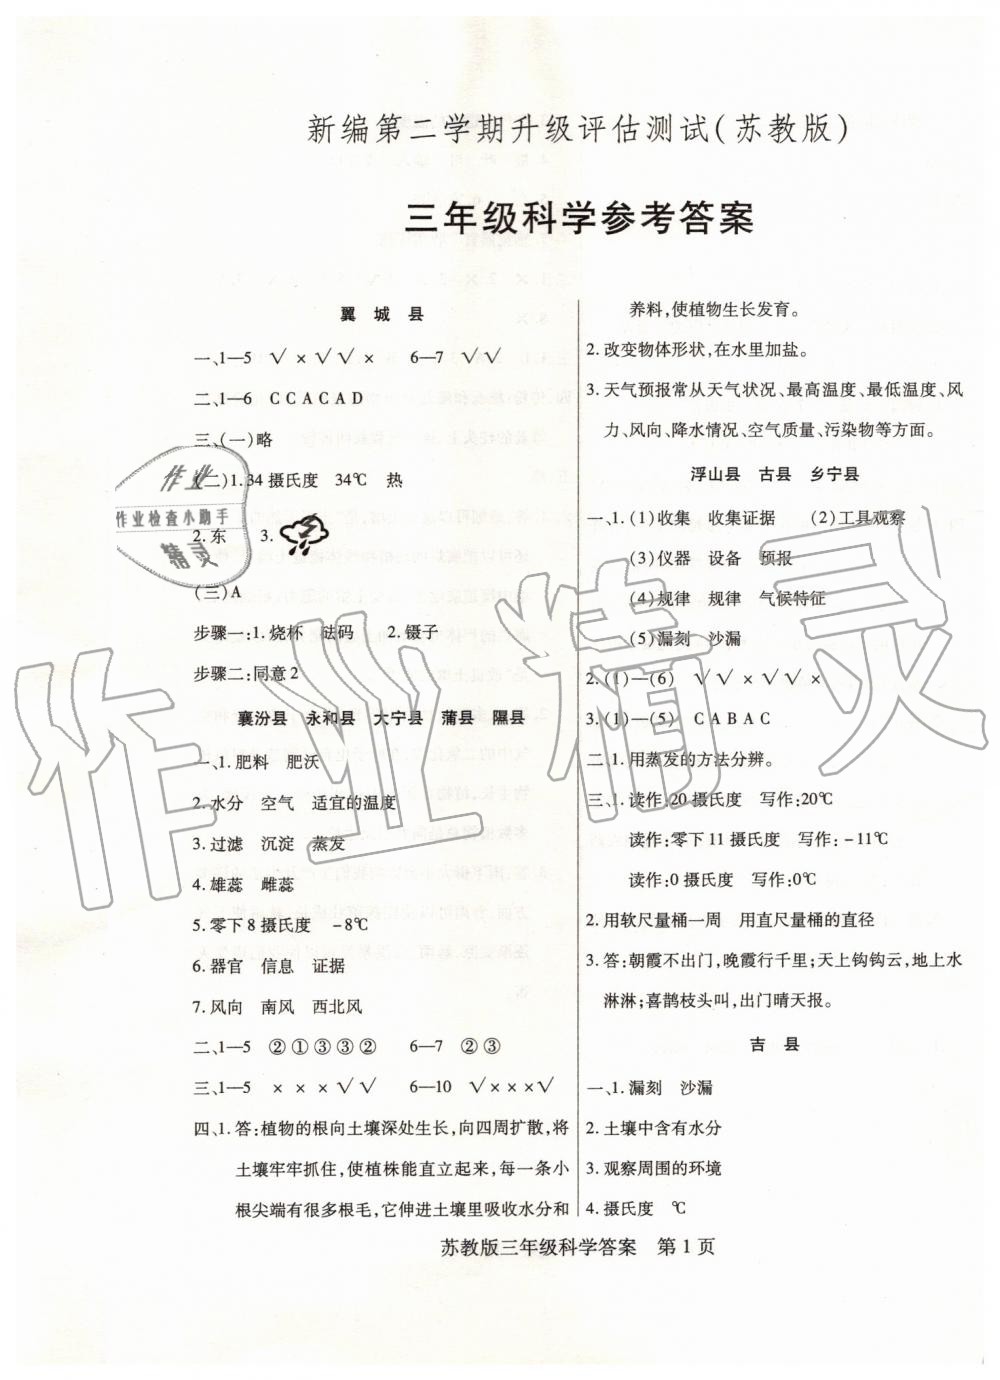 新编第二学期升级评估测试(苏教版)
三年级科学参考答案
翼 城 县
一、1—5 √ × √ √ × 6—7 √ √
二、1—6 C C A C A D
三、(一)略
(二)1.34摄氏度 34℃ 热
2.东 3.
(三)A
步骤一:1.烧杯 砝码 2.镊子
步骤二:同意2
襄汾县 永和县 大宁县 蒲县 隰县
一、1.肥料 肥沃
2.水分 空气 适宜的温度
3.过滤 沉淀 蒸发
4.雄蕊 雌蕊
5.零下8摄氏度 -8℃
6.器官 信息 证据
7.风向 南风 西北风
二、1—5 ②①③③② 6—7 ②③
三、1—5 × × × √ √ 6—10 √ × × × √
四、1.答:植物的根向土壤深处生长,向四周扩散,将
土壤牢牢抓住,使植株能直立起来,每一条小
根尖端有很多根毛,它伸进土壤里吸收水分和
养料,使植物生长发育。
2.改变物体形状,在水里加盐。
3.天气预报常从天气状况、最高温度、最低温度、风
力、风向、降水情况、空气质量、污染物等方面。
浮山县 古县 乡宁县
一、1.(1)收集 收集证据 (2)工具观察
(3)仪器 设备 预报
(4)规律 规律 气候特征
(5)漏刻 沙漏
2.(1)—(6) √ √ × √ √ ×
3.(1)—(5) C A B A C
二、1.用蒸发的方法分辨。
三、1.读作:20摄氏度 写作:20℃
读作:零下11摄氏度 写作:-11℃
读作:0摄氏度 写作:0℃
2.用软尺量桶一周 用直尺量桶的直径
3.答:朝霞不出门,晚霞行千里;天上钩钩云,地上水
淋淋;喜鹊枝头叫,出门晴天报。
吉 县
一、1.漏刻 沙漏
2.土壤中含有水分
3.观察周围的环境
4.摄氏度 ℃
苏教版三年级科学答案 第1页
作业
作业检查小助手
精灵
作业精灵